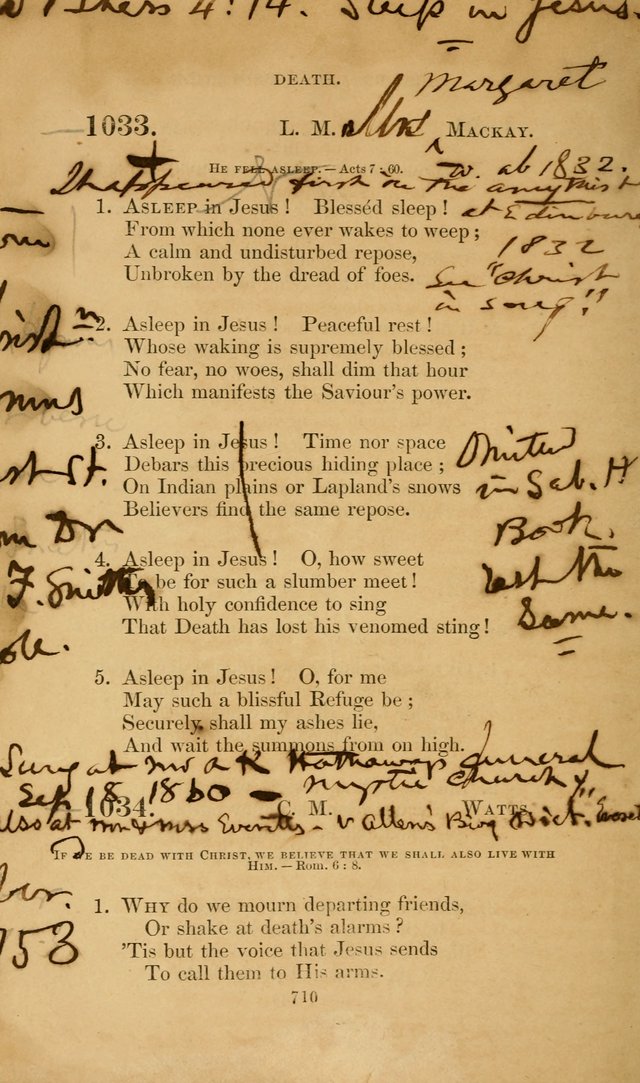 Thess 4:14. Sleep in Jesus.
DEATH.
Margaret
1033. L. M. Mrs MACKAY.
HE FELL ASLEEP. — Acts 7 : 60.
w. ab 1832.
It appeared first in The amythist
at Edinburg
1832
See "Christ
in song."
1. ASLEEP in Jesus! Blesséd sleep!
From which none ever wakes to weep;
A calm and undisturbed repose,
Unbroken by the dread of foes.
2. Asleep in Jesus! Peaceful rest!
Whose waking is supremely blessed;
No fear, no woes, shall dim that hour
Which manifests the Saviour's power.
3. Asleep in Jesus! Time nor space
Debars this precious hiding place;
On Indian plains or Lapland's snows
Believers find the same repose.
Omitted
in Sab. H
Book.
rest the
Same.
4. Asleep in Jesus! O, how sweet
To be for such a slumber meet!
With holy confidence to sing
That Death has lost his venomed sting!
st St.
m Dr
F. Smith
ole.
5. Asleep in Jesus! O, for me
May such a blissful Refuge be;
Securely shall my ashes lie,
And wait the summons from on high.
Sung at Mr A K Hathaways funeral
Sep 18 1860 — Mystic Church
1034. C. M. WATTS.
also at Mr & Mrs Everetts - v Allen's Biog Dict. "Everet
IF WE BE DEAD WITH CHRIST, WE BELIEVE THAT WE SHALL ALSO LIVE WITH
HIM. — Rom. 6 : 8.
ber.
753
1. WHY do we mourn departing friends,
Or shake at death's alarms?
'Tis but the voice that Jesus sends
To call them to His arms.
710